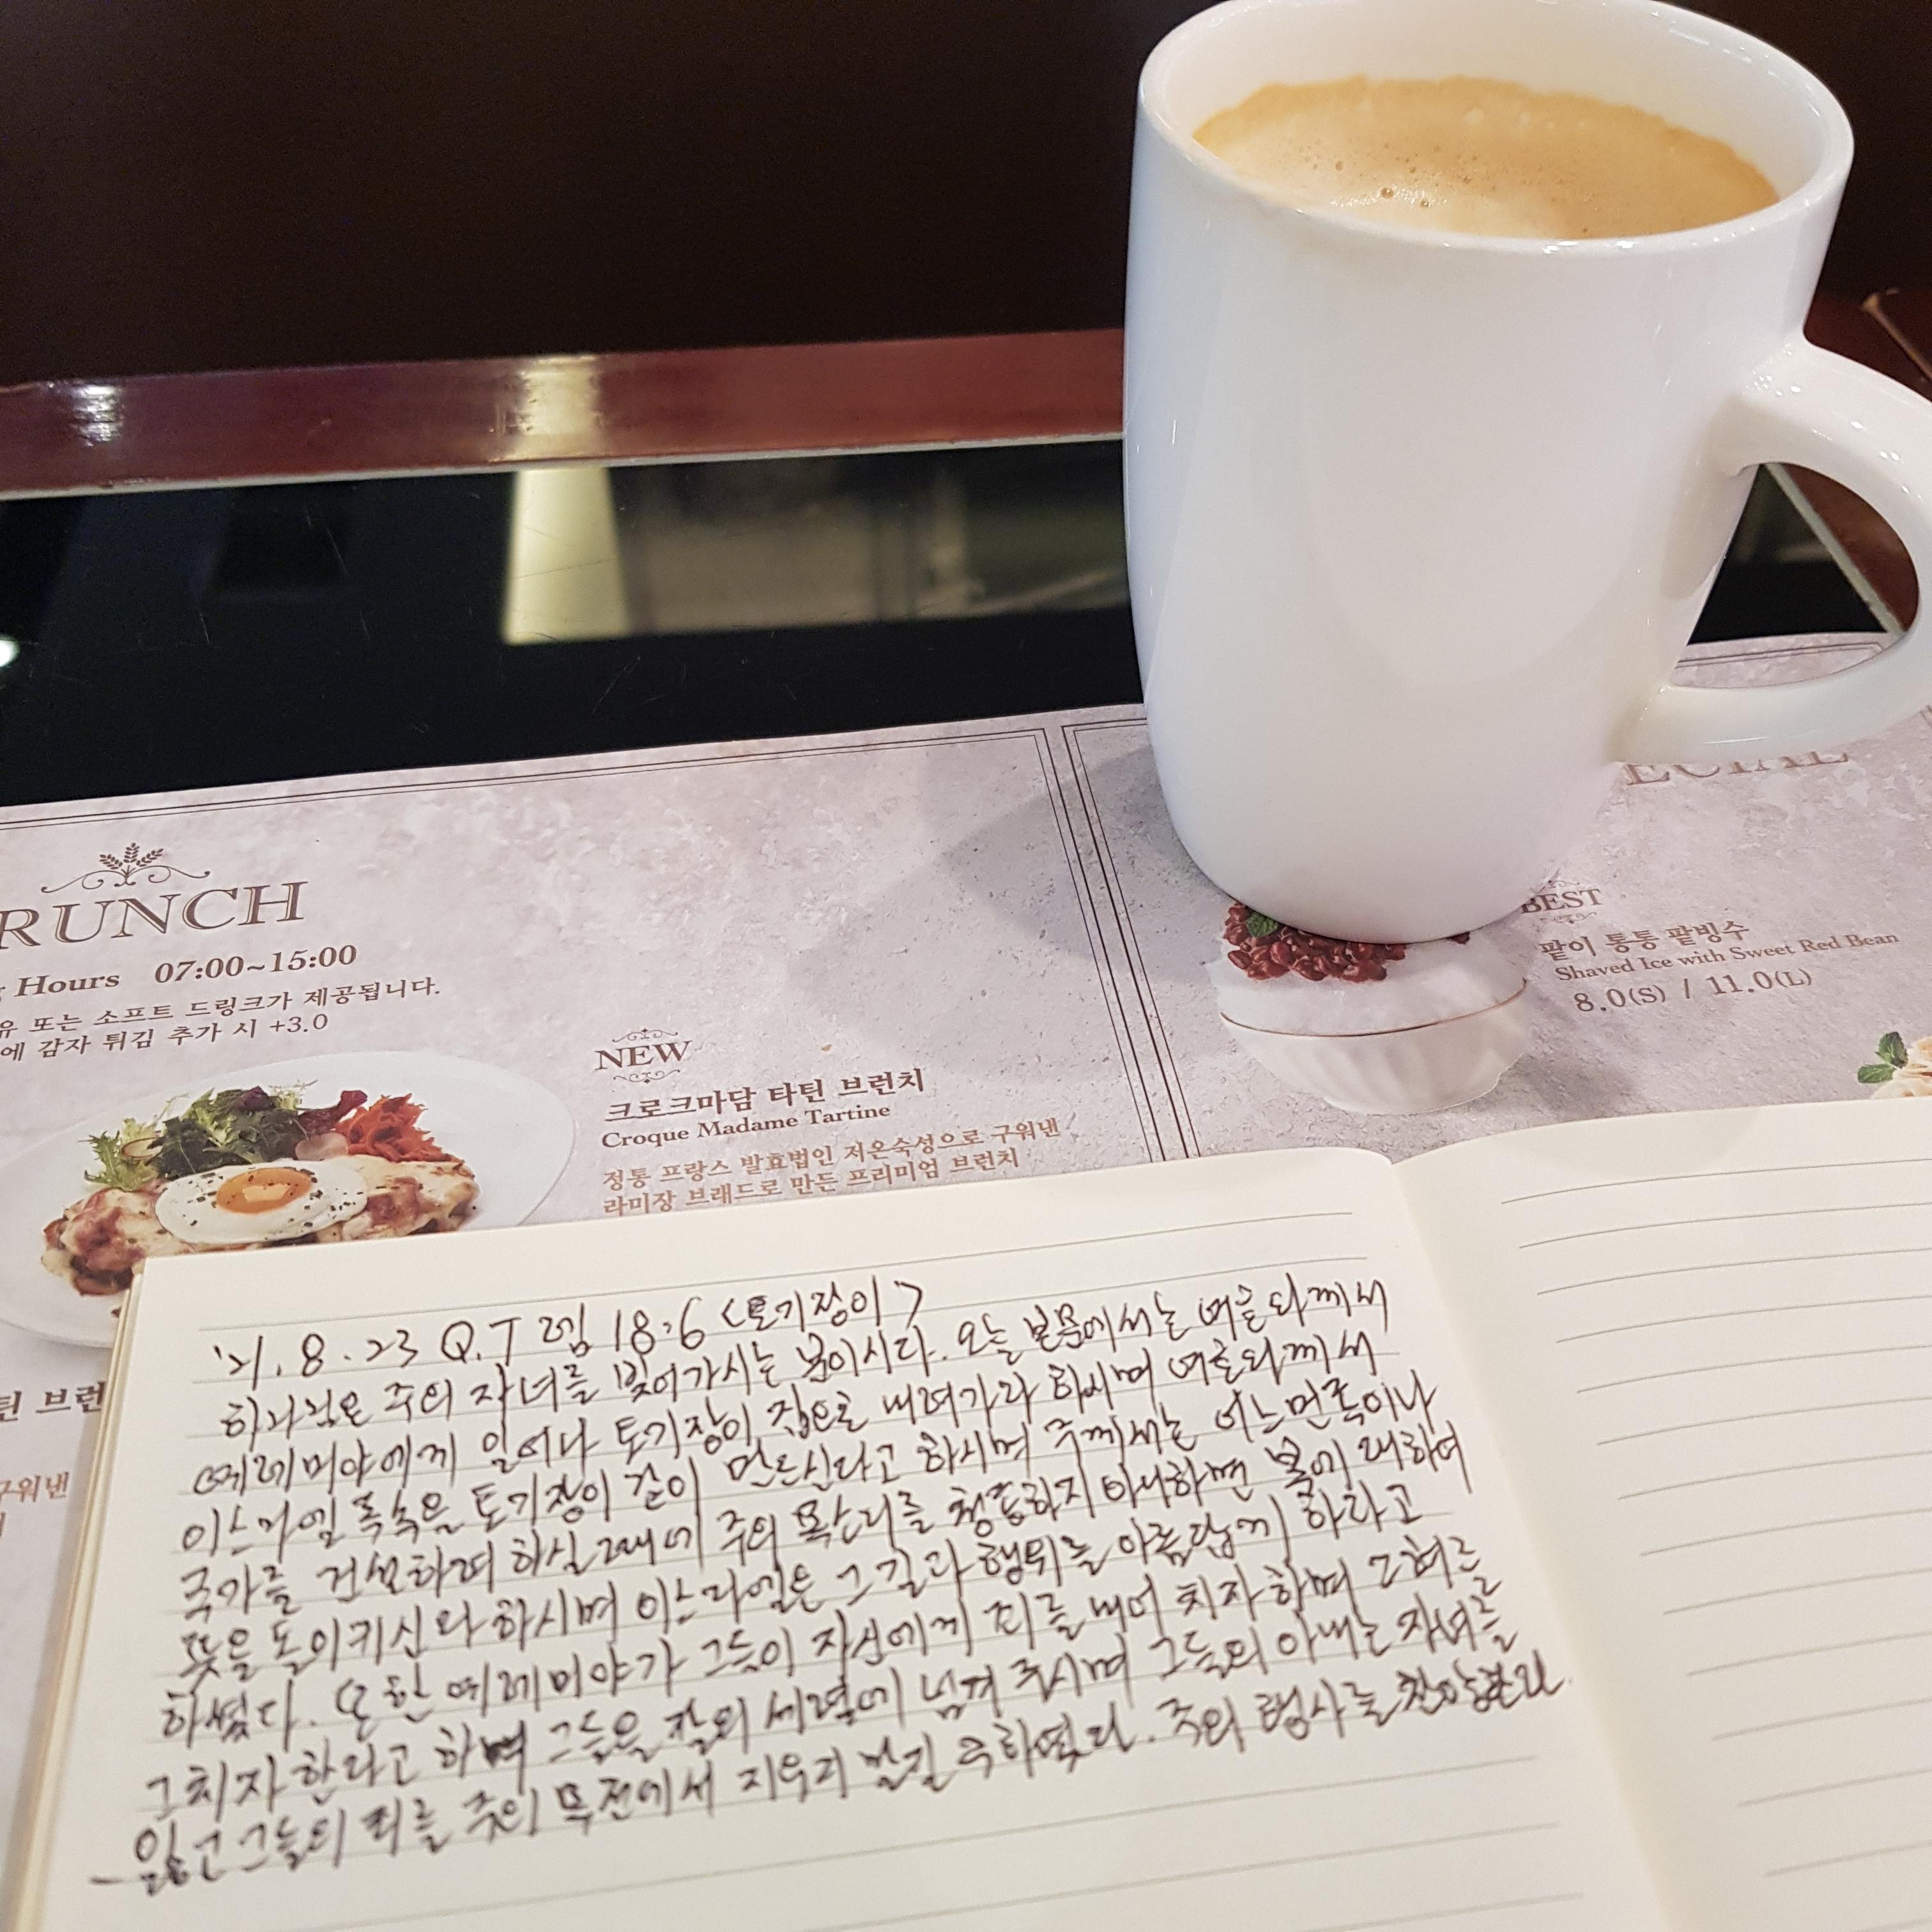 RUNCH
Hours 07:00~15:00
유 또는 소프트 드링크가 제공됩니다.
에 감자 튀김 추가 시 +3.0
NEW
크로크마담 타틴 브런치
Croque Madame Tartine
정통 프랑스 발효법인 저온숙성으로 구워낸
라미장 브래드로 만든 프리미엄 브런치
ECIAL
BEST
팥이 통통 팥빙수
Shaved Ice with Sweet Red Bean
8.0(S) / 11.0(L)
틴 브런
구워낸
'21.8.23 Q.T 렘 18:6 <토기장이>
하나님은 주의 자녀를 빚어가시는 분이시다. 오늘 본문에서는 여호와께서
예레미야에게 일어나 토기장이 집으로 내려가라 하시며 여호와께서
이스라엘 족속은 토기장이 같이 만드신다고 하시며 주께서는 어느민족이나
국가를 건설하려 하실때에 주의 목소리를 청종하지 아니하면 복에 대하여
뜻을 돌이키신다 하시며 이스라엘은 그길과 행위를 아름답게 하라고
하셨다. 또한 예레미야가 그들이 자신에게 죄를 내어 치자하며 그혀를
그치자 한다고 하며 그들을 칼의 세력에 넘겨 주시며 그들의 아내는 자녀를
잃고 그들의 죄를 주의 목전에서 지우지 말길 구하였다. 주의 행사를